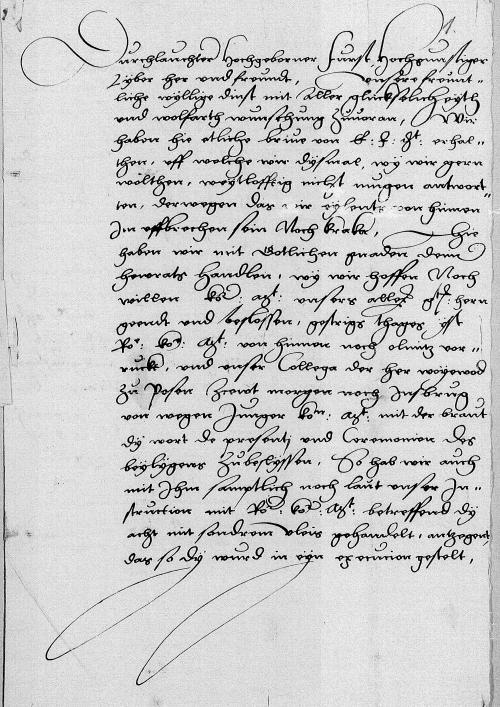 Durchlauchter Hochgeborner Furst, Hochgunstiger
Lyber her und freundt, unsere freunt-
liche wyllige dinst mit aller gluckselickeyth
und wolfarth wunschung zuuoran, Wir
haben hie etliche brive von E. F. Gt: erhal-
then, uff welche wir dysmal, wy wir gern
wolthen, weytlofftig nicht mugen antwor-
ten, derwegen das wir eylents von hinnen
Im uffbrechen sein Noch kraka, Hie
haben wir mit Gotlichen gnaden dem
heyrats handlen, wy wir hoffen Noch
willen ko: Mt: unsers aller gt: hern
geendt und beslossen, gestrigs thages yst
Ro: ko: Mt: von hinnen noch olmitz vor-
ruckt, und unser Collega der her woyewod
zu Posen zceut morgen noch Insbrug
von wegen Junger kon: Mt: mit der braut
dy wort de presenti und Ceremonien des
beylygens zubeslyssen, So hab wir auch
mit Ihm samptlich noch laut unser In-
struction mit Ro: ko: Mt: betreffend dy
acht mit sondrem vleis gehandelt, antzegent
das so dy wurd in eyn execucion gestelt,